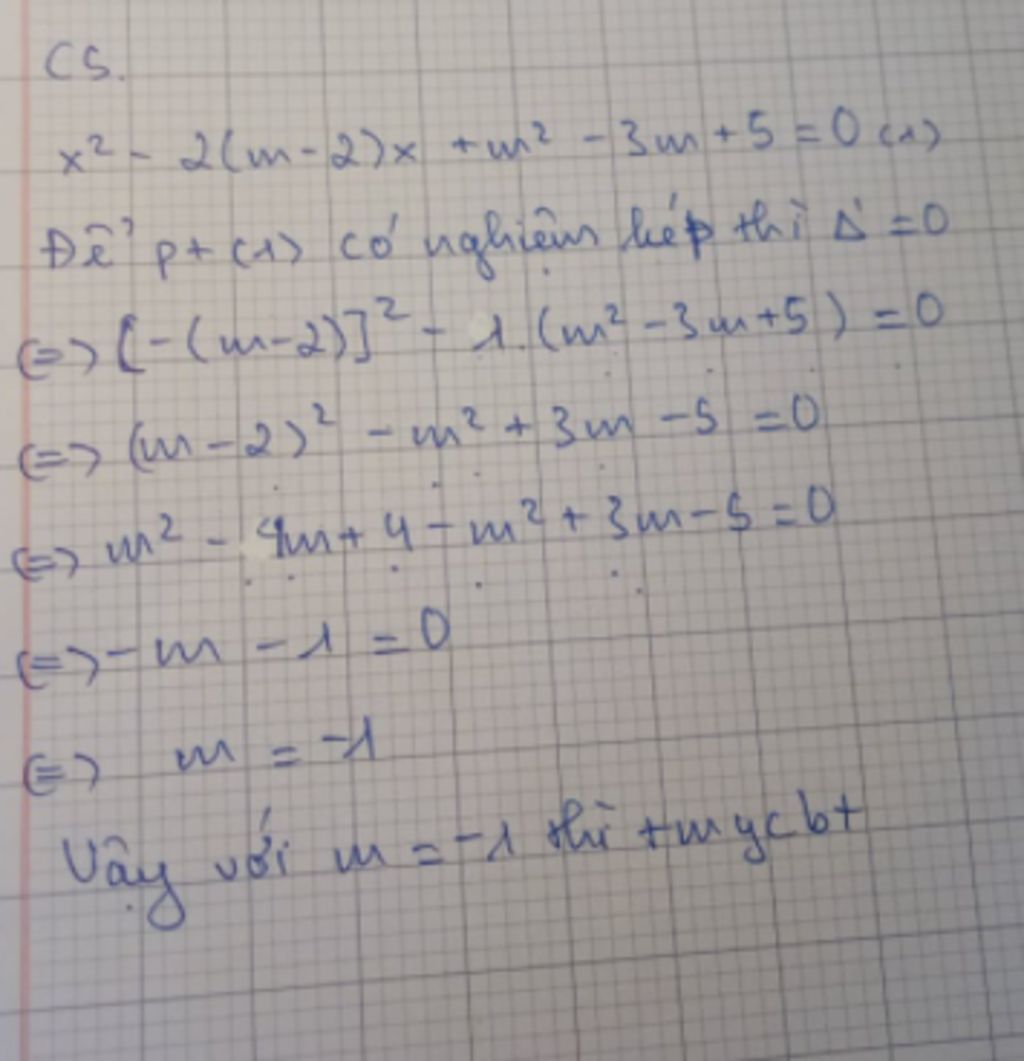 C5.
x² - 2(m-2)x + m² - 3m + 5 = 0 (1)
Để pt (1) có nghiệm kép thì Δ' = 0
(=) [-(m-2)]² - 1.(m² - 3m + 5) = 0
(=) (m-2)² - m² + 3m - 5 = 0
(=) m² - 4m + 4 - m² + 3m - 5 = 0
(=) - m - 1 = 0
(=) m = -1
Vậy với m = -1 thì tmycbt